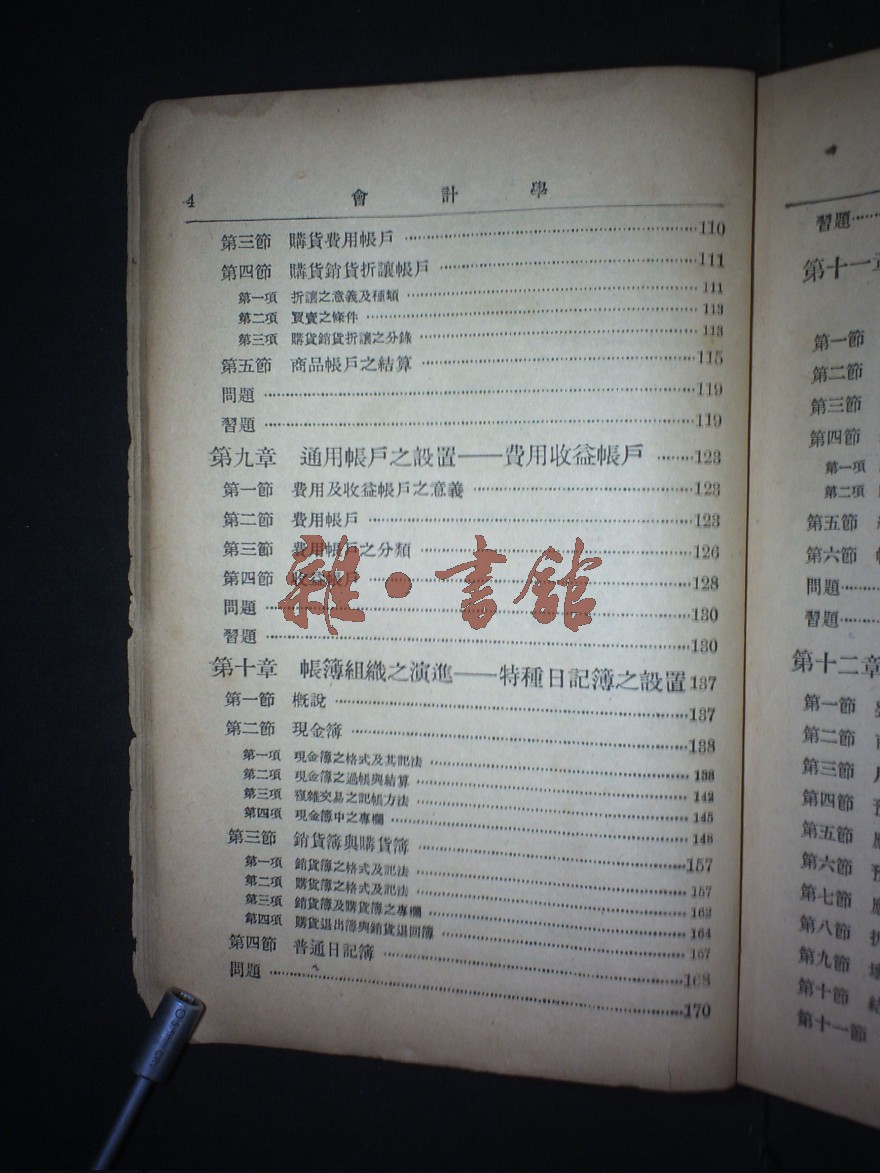 4 會計學
第三節 購貨費用帳戶 ……… 110
第四節 購貨銷貨折讓帳戶 ……… 111
第一項 折讓之意義及種類 ……… 111
第二項 買賣之條件 ……… 113
第三項 購貨銷貨折讓之分錄 ……… 113
第五節 商品帳戶之結算 ……… 115
問題 ……… 119
習題 ……… 119
第九章 通用帳戶之設置——費用收益帳戶 ……… 123
第一節 費用及收益帳戶之意義 ……… 123
第二節 費用帳戶 ……… 123
第三節 費用帳戶之分類 ……… 126
第四節 收益帳戶 ……… 128
問題 ……… 130
習題 ……… 130
第十章 帳簿組織之演進——特種日記簿之設置 137
第一節 概說 ……… 137
第二節 現金簿 ……… 138
第一項 現金簿之格式及其記法 ……… 138
第二項 現金簿之過帳與結算 ……… 142
第三項 複雜交易之記帳方法 ……… 145
第四項 現金簿中之專欄 ……… 148
第三節 銷貨簿與購貨簿 ……… 157
第一項 銷貨簿之格式及記法 ……… 157
第二項 購貨簿之格式及記法 ……… 162
第三項 銷貨簿及購貨簿之專欄 ……… 164
第四項 購貨退出簿與銷貨退回簿 ……… 167
第四節 普通日記簿 ……… 168
問題 ……… 170
雜·書館
習題
第十一章
第一節
第二節
第三節
第四節
第一項
第二項
第五節
第六節
問題
習題
第十二章
第一節
第二節
第三節
第四節
第五節
第六節
第七節
第八節
第九節
第十節
第十一節